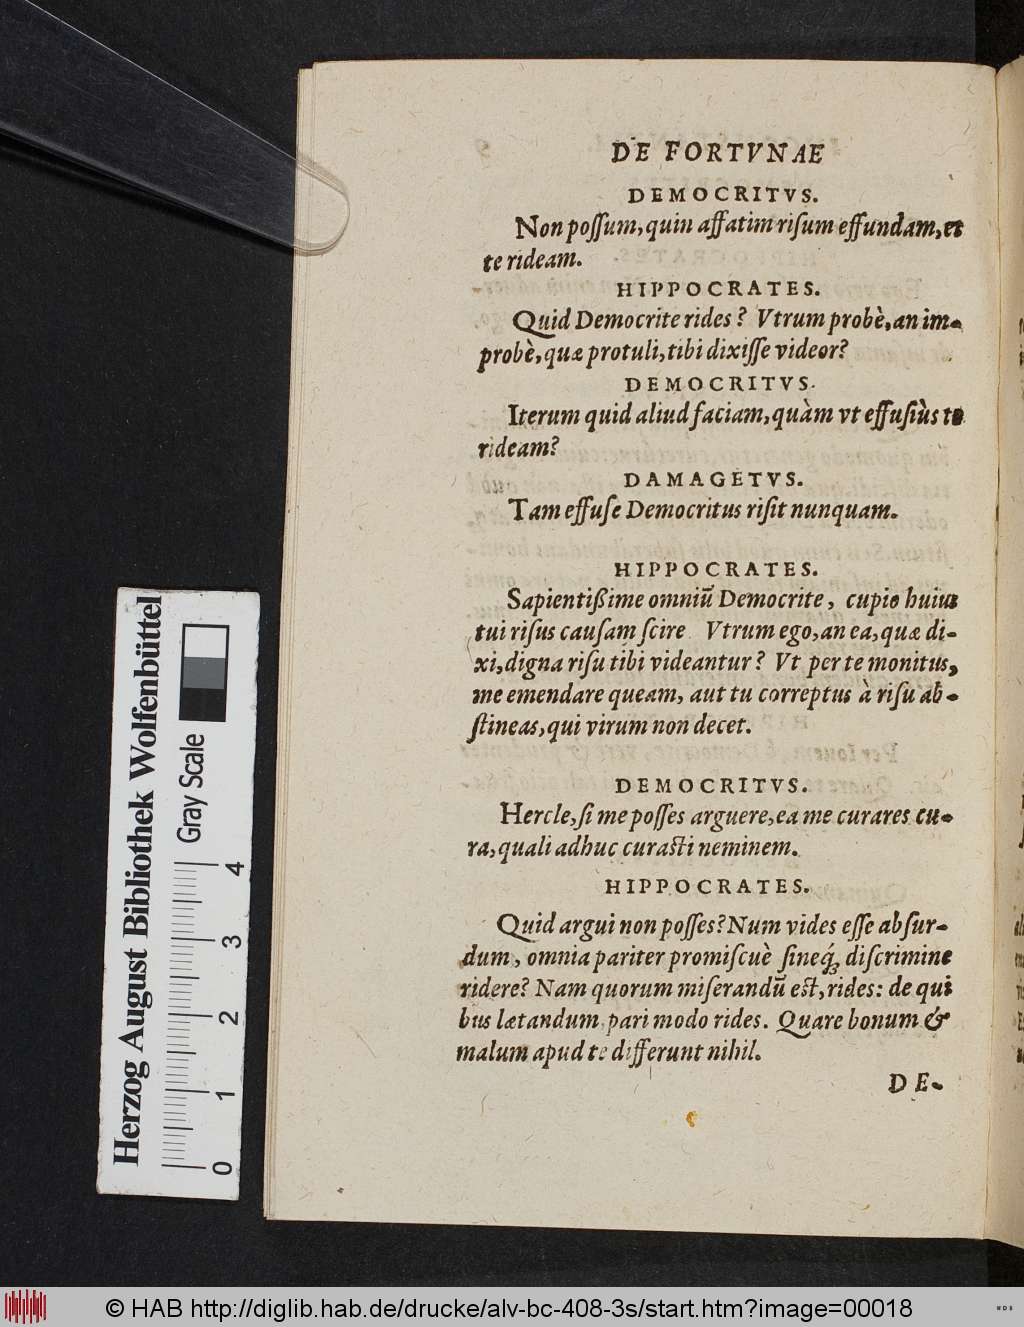 DE FORTVNAE
DEMOCRITVS.
Non poſſum, quin affatim riſum effundam, et
te rideam.
HIPPOCRATES.
Quid Democrite rides? Vtrum probè, an im-
probè, quæ protuli, tibi dixiſſe videor?
DEMOCRITVS.
Iterum quid aliud faciam, quàm vt effuſiùs te
rideam?
DAMAGETVS.
Tam effuſe Democritus riſit nunquam.
HIPPOCRATES.
Sapientißime omniũ Democrite, cupio huius
tui riſus cauſam ſcire Vtrum ego, an ea, quæ di-
xi, digna riſu tibi videantur? Vt per te monitus,
me emendare queam, aut tu correptus à riſu ab-
ſtineas, qui virum non decet.
DEMOCRITVS.
Hercle, ſi me poſſes arguere, ea me curares cu-
ra, quali adhuc curaſti neminem.
HIPPOCRATES.
Quid argui non poſſes? Num vides eſſe abſur-
dum, omnia pariter promiſcuè ſineq́; diſcrimine
ridere? Nam quorum miſerandũ eſt, rides: de qui
bus lætandum, pari modo rides. Quare bonum &
malum apud te differunt nihil.
DE-
Herzog August Bibliothek Wolfenbüttel
Gray Scale
0 1 2 3 4
© HAB http://diglib.hab.de/drucke/alv-bc-408-3s/start.htm?image=00018